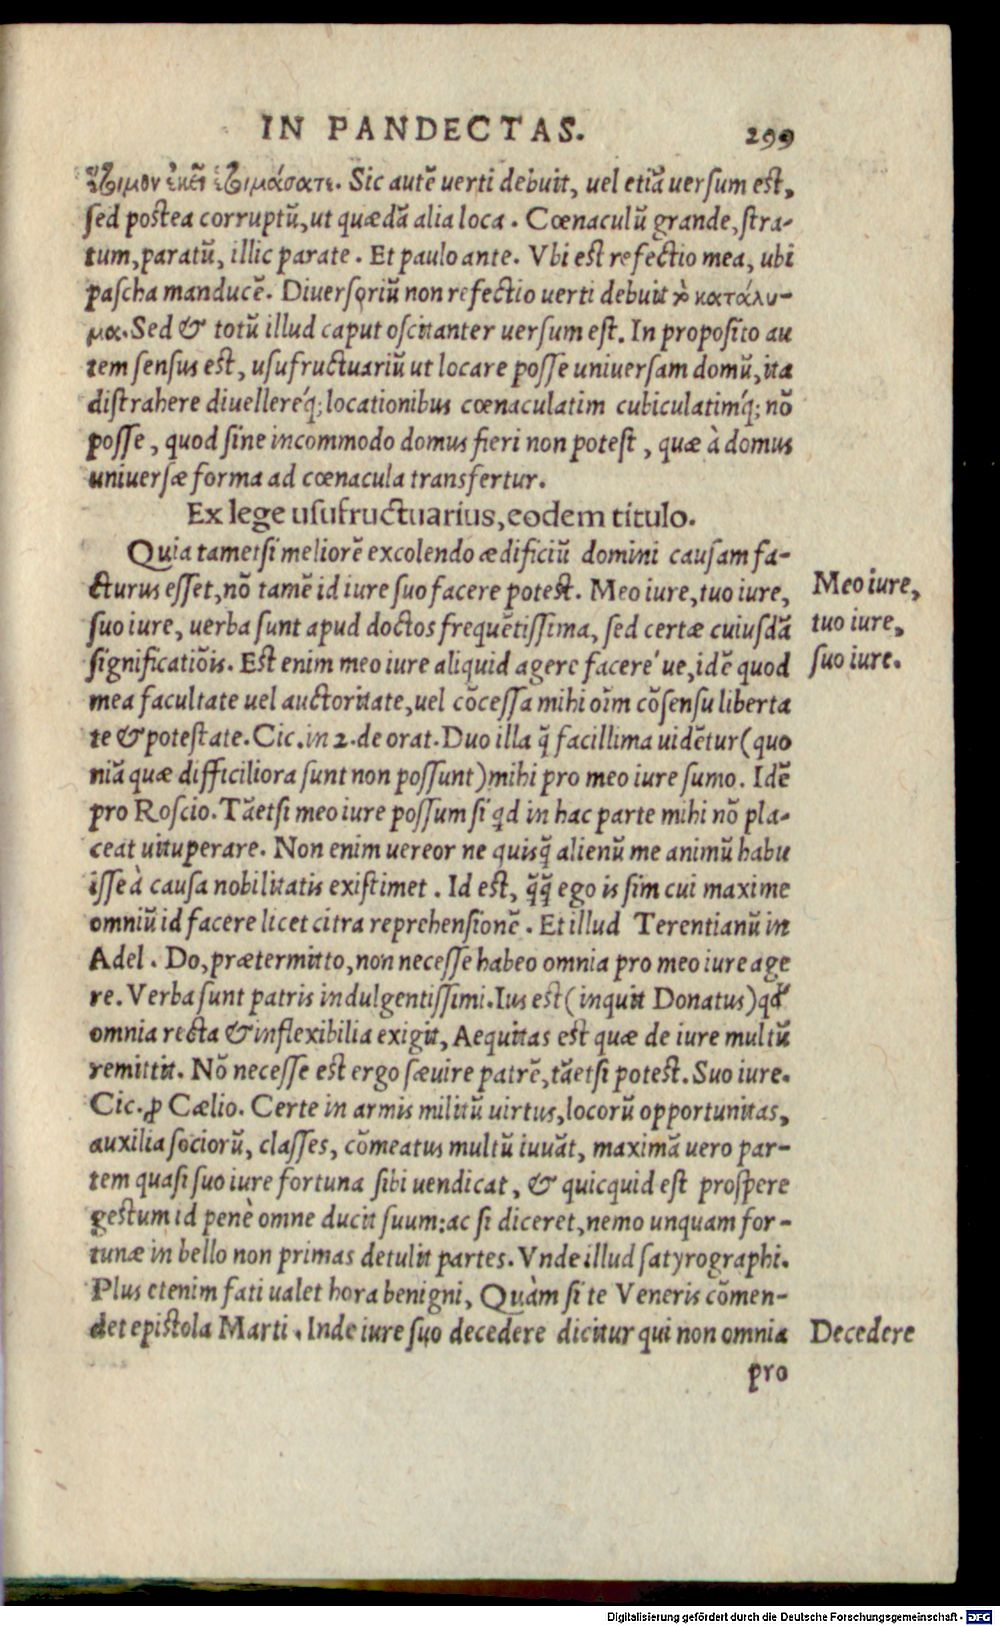 IN PANDECTAS. 299
ἕτοιμον ἐκεῖ ἑτοιμάσατε. Sic autẽ uerti debuit, uel etiã uersum est,
sed postea corruptũ, ut quædã alia loca. Cœnaculũ grande, stra-
tum, paratũ, illic parate. Et paulo ante. Vbi est refectio mea, ubi
pascha manducẽ. Diuersoriũ non refectio uerti debuit τὸ κατάλυ-
μα. Sed & totũ illud caput oscitanter uersum est. In proposito au
tem sensus est, usufructuariũ ut locare posse uniuersam domũ, ita
distrahere diuellereq́; locationibus cœnaculatim cubiculatimq́; nõ
posse, quod sine incommodo domus fieri non potest, quæ à domus
uniuersæ forma ad cœnacula transfertur.
Ex lege usufructuarius, eodem titulo.
Quia tametsi meliorẽ excolendo ædificiũ domini causam fa-
cturus esset, nõ tamẽ id iure suo facere potest. Meo iure, tuo iure,
Meo iure,
suo iure, uerba sunt apud doctos frequẽtissima, sed certæ cuiusdã
tuo iure,
significatiõis. Est enim meo iure aliquid agere facere´ue, idẽ quod
suo iure.
mea facultate uel auctoritate, uel cõcessa mihi oĩm cõsensu liberta
te & potestate. Cic. in 2. de orat. Duo illa q̃ facillima uidẽtur (quo
niã quæ difficiliora sunt non possunt) mihi pro meo iure sumo. Idẽ
pro Roscio. Tãetsi meo iure possum si qd in hac parte mihi nõ pla-
ceat uituperare. Non enim uereor ne quisq̃ alienũ me animũ habu
isse à causa nobilitatis existimet. Id est, q̃q̃ ego is sim cui maxime
omniũ id facere licet citra reprehensionẽ. Et illud Terentianũ in
Adel. Do, prætermitto, non necesse habeo omnia pro meo iure age
re. Verba sunt patris indulgentissimi. Ius est (inquit Donatus) qđ
omnia recta & inflexibilia exigit, Aequitas est quæ de iure multũ
remittit. Nõ necesse est ergo sæuire patrẽ, tãetsi potest. Suo iure.
Cic. ꝓ Cælio. Certe in armis militũ uirtus, locorũ opportunitas,
auxilia sociorũ, classes, cõmeatus multũ iuuãt, maximã uero par-
tem quasi suo iure fortuna sibi uendicat, & quicquid est prospere
gestum id penè omne ducit suum: ac si diceret, nemo unquam for-
tunæ in bello non primas detulit partes. Vnde illud satyrographi.
Plus etenim fati ualet hora benigni, Quàm si te Veneris cõmen-
det epistola Marti. Inde iure suo decedere dicitur qui non omnia
Decedere
pro
Digitalisierung gefördert durch die Deutsche Forschungsgemeinschaft - DFG